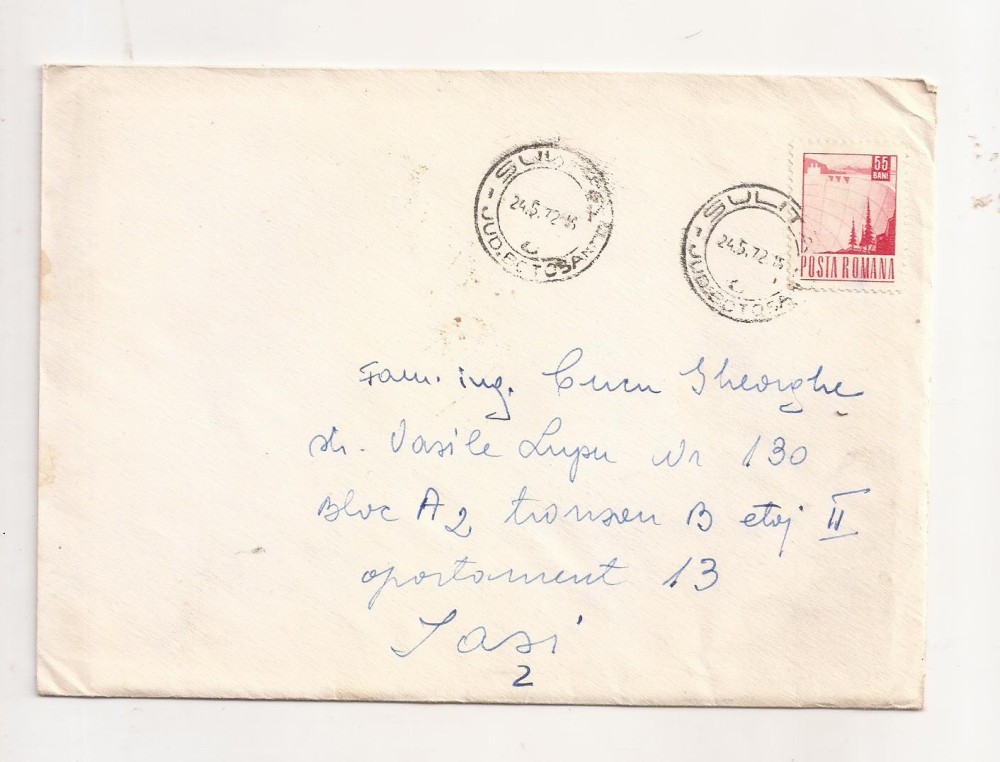 SULIȚA
24.5.72-16
- JUD. BOTOȘANI -
SULIȚA
24.5.72-16
- JUD. BOTOȘANI
55
BANI
POSTA ROMANA
Fam. ing. Cucu Gheorghe
str. Vasile Lupu Nr 130
Bloc A2 tronson B etaj II
apartament 13
Iasi
2